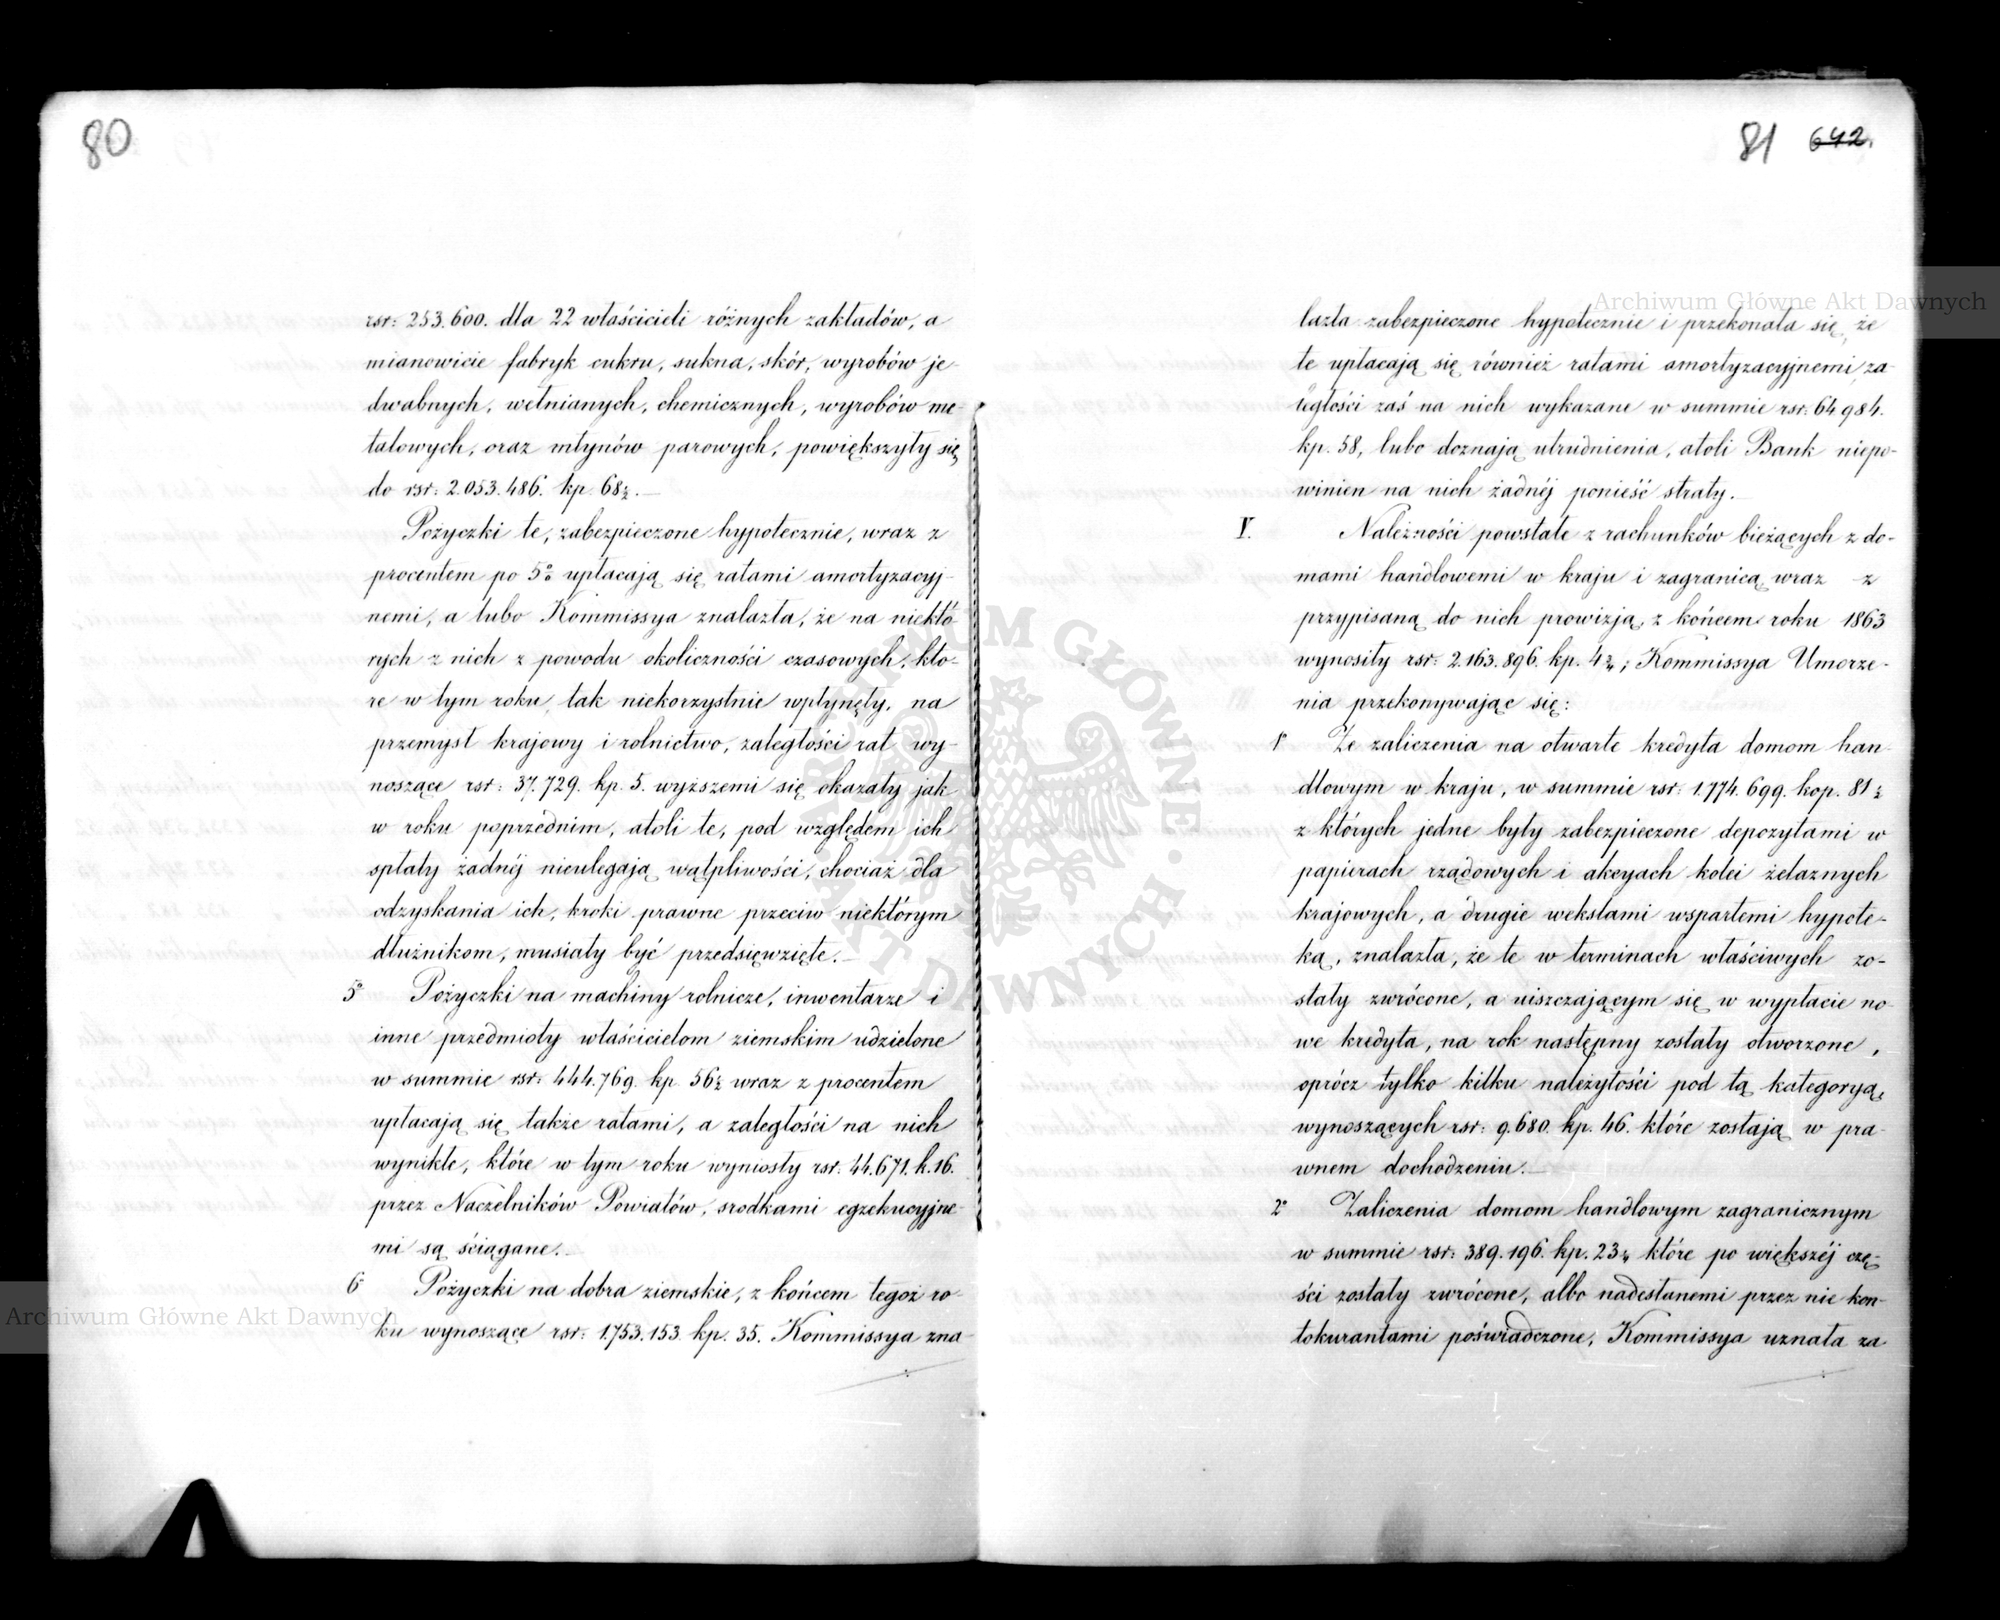 80
rsr: 253.600. dla 22 właścicieli różnych zakładów, a
mianowicie fabryk cukru, sukna, skór, wyrobów je-
dwabnych, wełnianych, chemicznych, wyrobów me-
talowych, oraz młynów parowych, powiększyły się
do rsr: 2.053.486. kp. 68½.—
Pożyczki te, zabezpieczone hypotecznie, wraz z
procentem po 5% upłacają się ratami amortyzacyj-
nemi, a lubo Kommissya znalazła, że na niektó-
rych z nich z powodu okoliczności czasowych, któ-
re w tym roku, tak niekorzystnie wpłynęły, na
przemysł krajowy i rolnictwo, zaległości rat wy-
noszące rsr: 37.729. kp. 5. wyższemi się okazały jak
w roku poprzednim, atoli te, pod względem ich
spłaty żadnéj nieulegają wątpliwości, chociaż dla
odzyskania ich, kroki prawne przeciw niektórym
dłużnikom, musiały być przedsięwzięte.—
5º Pożyczki na machiny rolnicze, inwentarze i
inne przedmioty właścicielom ziemskim udzielone
w summie rsr: 444.769. kp. 56½ wraz z procentem
upłacają się także ratami, a zaległości na nich
wynikłe, które w tym roku wyniosły rsr: 44.671. k. 16.
przez Naczelników Powiatów, srodkami egzekucyjne-
mi są ściągane.—
6º Pożyczki na dobra ziemskie, z końcem tegoż ro-
ku wynoszące rsr: 1.753.153. kp. 35. Kommissya zna-
81 642.
lazła zabezpieczone hypotecznie i przekonała się, że
te upłacają się również ratami amortyzacyjnemi, za-
ległości zaś na nich wykazane w summie rsr: 64.984.
kp. 58, lubo doznają utrudnienia, atoli Bank niepo-
winien na nich żadnéj ponieść straty.—
V. Należności powstałe z rachunków bieżących z do-
mami handlowemi w kraju i zagranicą, wraz z
przypisaną do nich prowizją, z końcem roku 1863
wynosiły rsr: 2.163.896. kp. 4¾; Kommissya Umorze-
nia przekonywając się:
1º Że zaliczenia na otwarte kredyta domom han-
dlowym w kraju, w summie rsr: 1.774.699. kop. 81½
z których jedne były zabezpieczone depozytami w
papierach rządowych i akcyach kolei żelaznych
krajowych, a drugie wekslami wspartemi hypote-
ką, znalazła, że te w terminach właściwych zo-
stały zwrócone, a uiszczającym się w wypłacie no-
we kredyta, na rok następny zostały otworzone,
oprócz tylko kilku należytości pod tą kategoryą,
wynoszących rsr: 9.680. kp. 46. które zostają w pra-
wnem dochodzeniu.—
2º Zaliczenia domom handlowym zagranicznym
w summie rsr: 389.196. kp. 23¼ które po większéj czę-
ści zostały zwrócone, albo nadesłanemi przez nie kon-
tokurantami poświadczone, Kommissya uznała za
Archiwum Główne Akt Dawnych
Archiwum Główne Akt Dawnych
ARCHIWUM GŁÓWNE AKT DAWNYCH